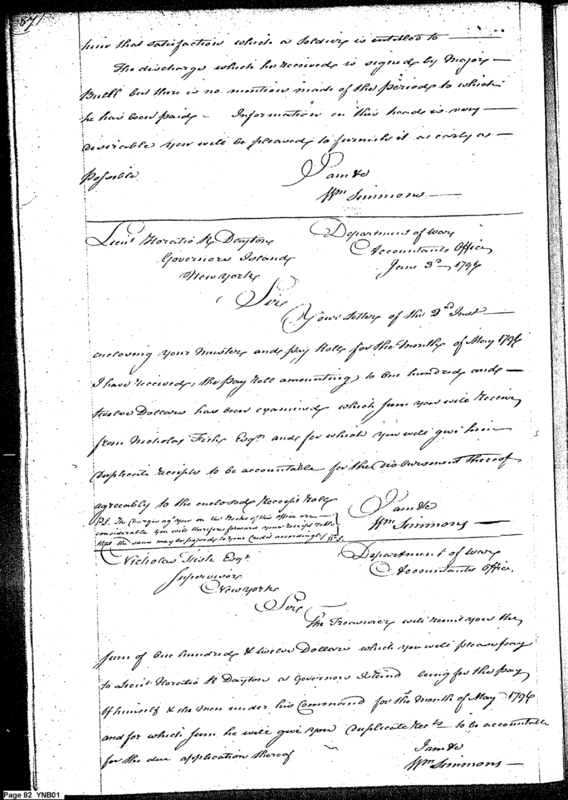 87
him that satisfaction which a Soldier is entitled to
The discharge which he received is signed by Major
Buell but there is no mention made of the period to which
he has been paid - Information on this head is very
desireable you will be pleased to furnish it as early as
possible
I am &c
Wm Simmons
Lieut. Horatio R Dayton
Governors Island
New York
Department of War
Accountants Office
June 3d 1796
Sir
Your Letter of the 2nd Inst
enclosing your Muster and pay Rolls for the Month of May 1796
I have received, the Pay Roll amounting to One hundred and
twelve Dollars has been examined which sum you will Receive
from Nicholas Fish Esqr. and for which you will give him
duplicate receipts to be accountable for the disbursement thereof
agreeably to the enclosed Receipt Roll
I am &c
Wm Simmons
P.S. The Charges agt. you on the Books of this office are
considerable you will therefore forward your receipt rolls
that the same may be passed to your Credit accordingly W.S.
Nicholas Fish Esqr.
Supervisor
New York
Department of War
Accountants Office,
Sir
The Treasurer will remit you the
sum of One hundred & twelve Dollars which you will please pay
to Lieut Horatio R Dayton at Governors Island being for the pay
of himself & the men under his Command for the Month of May 1796
and for which sum he will give you duplicate Rects. to be accountable
for the due application thereof
I am &c
Wm Simmons
Page 82 YNB01